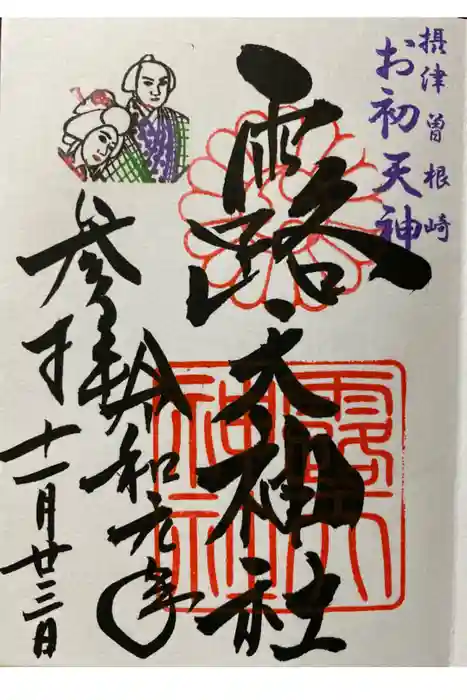 摂津曽根崎
お初天神
露天神社
令和元年
十一月廿三日
参拝